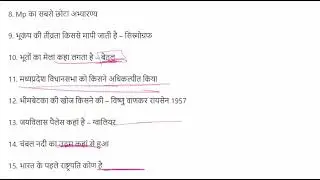 8. Mp का सबसे छोटा अभ्यारण्य
9. भूकंप की तीव्रता किससे मापी जाती है – सिस्मोग्राफ
10. भूतों का मेला कहा लगता है – बेतूल
11. मध्यप्रदेश विधानसभा को किसने अधिकल्पीत किया
12. भीमबेटका की खोज किसने की – विष्णु वाणकर रायसेन 1957
13. जयविलास पैलेस कहां है – ग्वालियर
14. चंबल नदी का उद्गम कहां से हुआ
15. भारत के पहले राष्ट्रपति कोण है